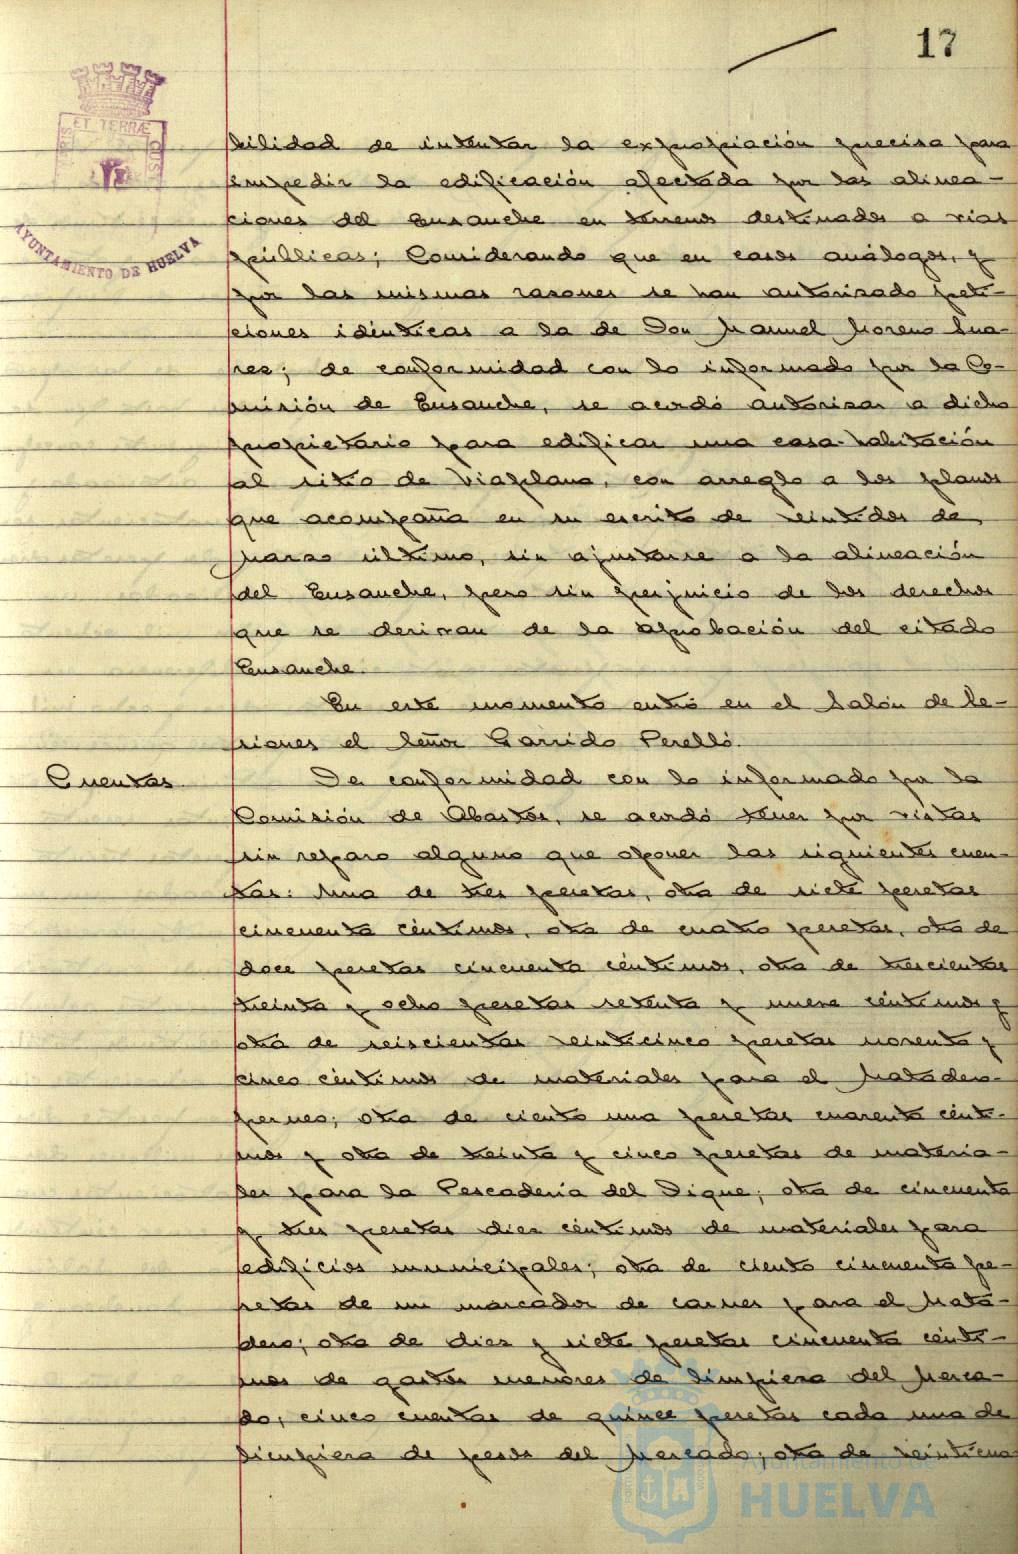 17
ET TERRÆ
CUS
AYUNTAMIENTO DE HUELVA
bilidad de intentar la expropiación precisa para
impedir la edificación afectada por las alinea-
ciones del Ensanche en terrenos destinados a vias
públicas; Considerando que en casos análogos, y
por las mismas razones se han autorizado peti-
ciones idénticas a la de Don Manuel Moreno Sua-
rez; de conformidad con lo informado por la Co-
misión de Ensanche, se acordó autorizar a dicho
propietario para edificar una casa-habitación
al sitio de Viaplana, con arreglo a los planos
que acompaña en su escrito de veintidos de
Marzo último, sin ajustarse a la alineación
del Ensanche, pero sin perjuicio de los derechos
que se derivan de la aprobación del citado
Ensanche.
En este momento entró en el Salón de Se-
siones el Señor Garrido Perelló.
Cuentas.
De conformidad con lo informado por la
Comisión de Abastos, se acordó tener por vistas
sin reparo alguno que oponer las siguientes cuen-
tas: Una de tres pesetas, otra de siete pesetas
cincuenta céntimos, otra de cuatro pesetas, otra de
doce pesetas cincuenta céntimos, otra de trescientas
treinta y ocho pesetas setenta y nueve céntimos y
otra de seiscientas veinticinco pesetas noventa y
cinco céntimos de materiales para el Matadero-
perneo; otra de ciento una pesetas cuarenta cénti-
mos y otra de treinta y cinco pesetas de materia-
les para la Pescaderia del Dique; otra de cincuenta
y tres pesetas diez céntimos de materiales para
edificios municipales; otra de ciento cincuenta pe-
setas de un marcador de carnes para el Mata-
dero; otra de diez y siete pesetas cincuenta cénti-
mos de gastos menores de limpieza del Merca-
do; cinco cuentas de quince pesetas cada una de
limpieza de pesos del Mercado; otra de
Ayuntamiento de
HUELVA